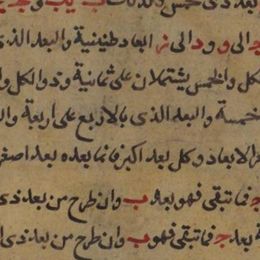 بعد ذى خمس وكذلك ب يب و ج يج
ج الى و و د الى ز ابعاد طنينية والبعد الذى
الكل والخمس يشتملان على ثمانية وذو الكل وا
خمسة والبعد الذى بالاربع على اربعة وا
الابعاد وكل بعد اكبر فانما بعده بعد اصغر
فما تبقى فهو بعد ب وان طرح من بعد ذى
بعد ج فما تبقى فهو ب وان طرح من بعد ذى ا